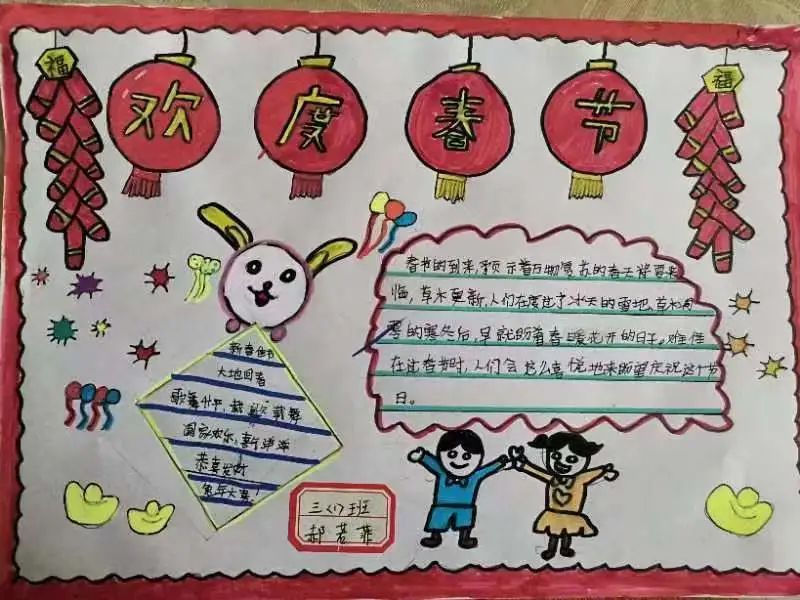 福
欢度春节
福
春节的到来,预示着万物复苏的春天将要来
临,草木更新,人们在度过了冰天的雪地,草木凋
零的寒冬后,早就盼着春暖花开的日子。难怪
在过春节时,人们会这么喜悦地来盼望庆祝这个节
日。
新春佳节
大地回春
歌舞升平,载歌载舞
国家欢乐,喜气洋洋
恭喜发财
兔年大吉!
三(1)班
郝若菲